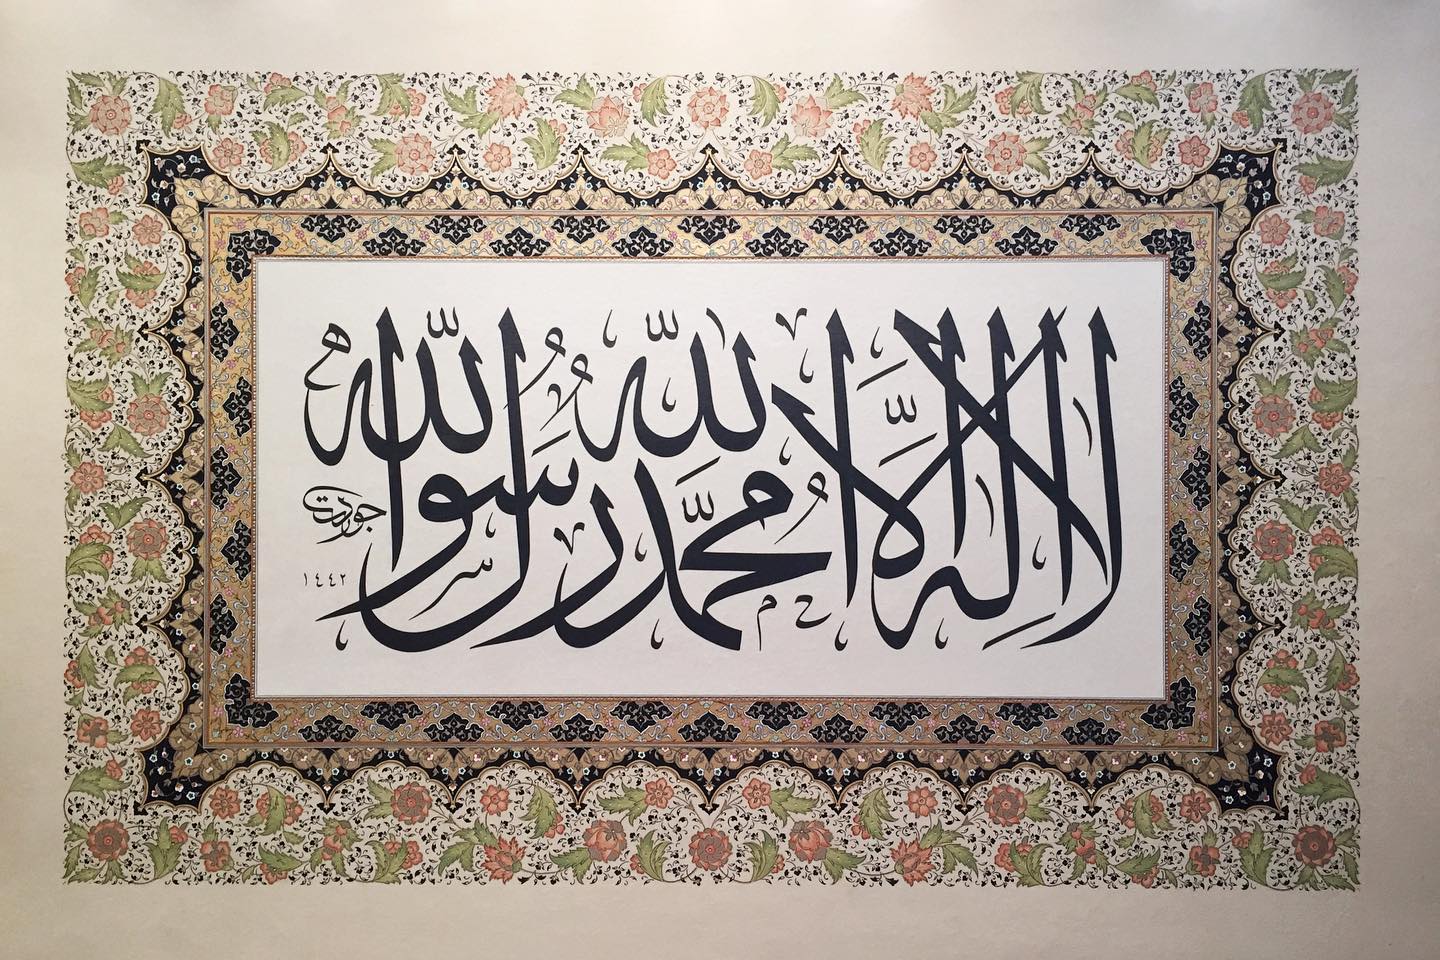 لا إله إلا الله محمد رسول الله
جودت
١٤٤٢